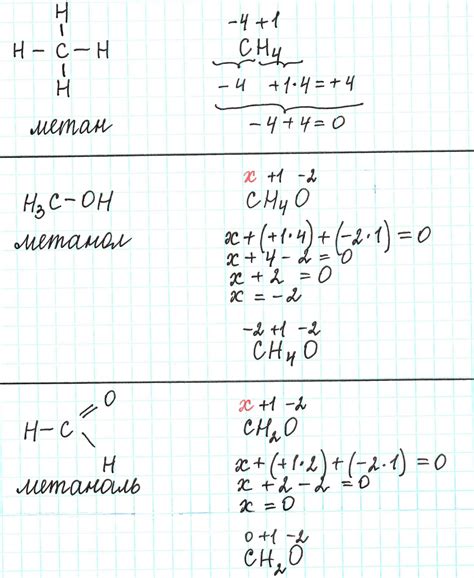 H
H – C – H
H
метан
-4 +1
CH₄
-4 +1·4=+4
-4+4=0
H₃C-OH
метанол
x +1 -2
CH₄O
x+(+1·4)+(-2·1)=0
x+4-2=0
x+2 =0
x =-2
-2 +1 -2
CH₄O
O
H-C
H
метаналь
x +1 -2
CH₂O
x+(+1·2)+(-2·1)=0
x+2-2=0
x=0
0 +1 -2
CH₂O